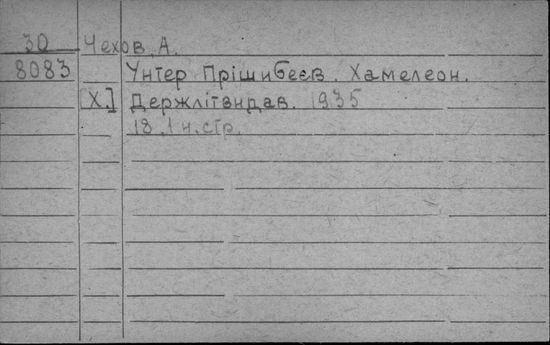 30 Чехов А.
8083 Унтер Прішибеєв. Хамелеон.
[Х.] Держлітвидав. 1935
18, 1 н. стр.